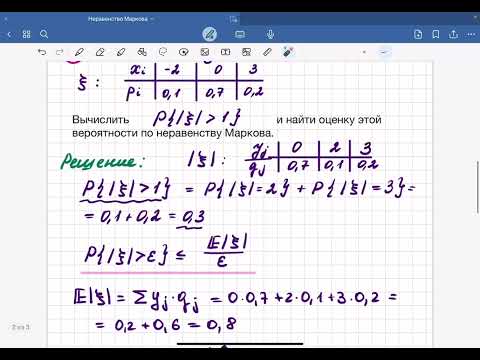 Неравенство Маркова
xi -2 0 3
ξ :
pi 0,1 0,7 0,2
Вычислить P{|ξ| > 1} и найти оценку этой
вероятности по неравенству Маркова.
Решение: |ξ| : yj 0 2 3
qj 0,7 0,1 0,2
P{|ξ|>1} = P{|ξ|=2} + P{|ξ|=3} =
= 0,1 + 0,2 = 0,3
P{|ξ|>ε} ≤ E|ξ| / ε
E|ξ| = Σ yj · qj = 0·0,7 + 2·0,1 + 3·0,2 =
= 0,2 + 0,6 = 0,8
2 из 3